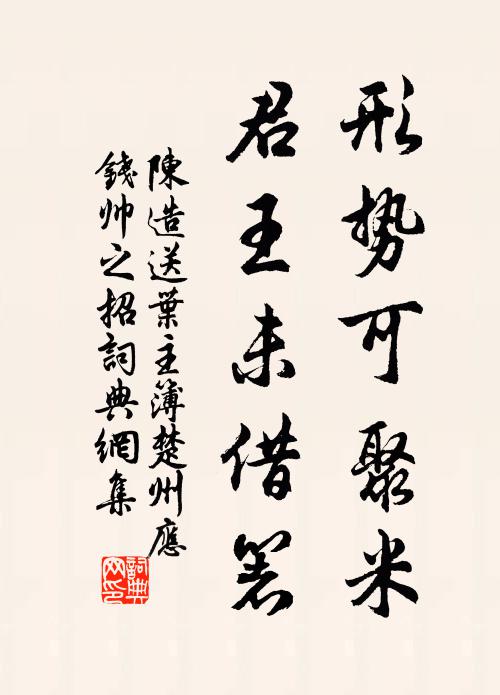 形势可聚米
君王未借箸
陳造送葉主簿楚州應
錢帅之招詞典網集
詞典网印